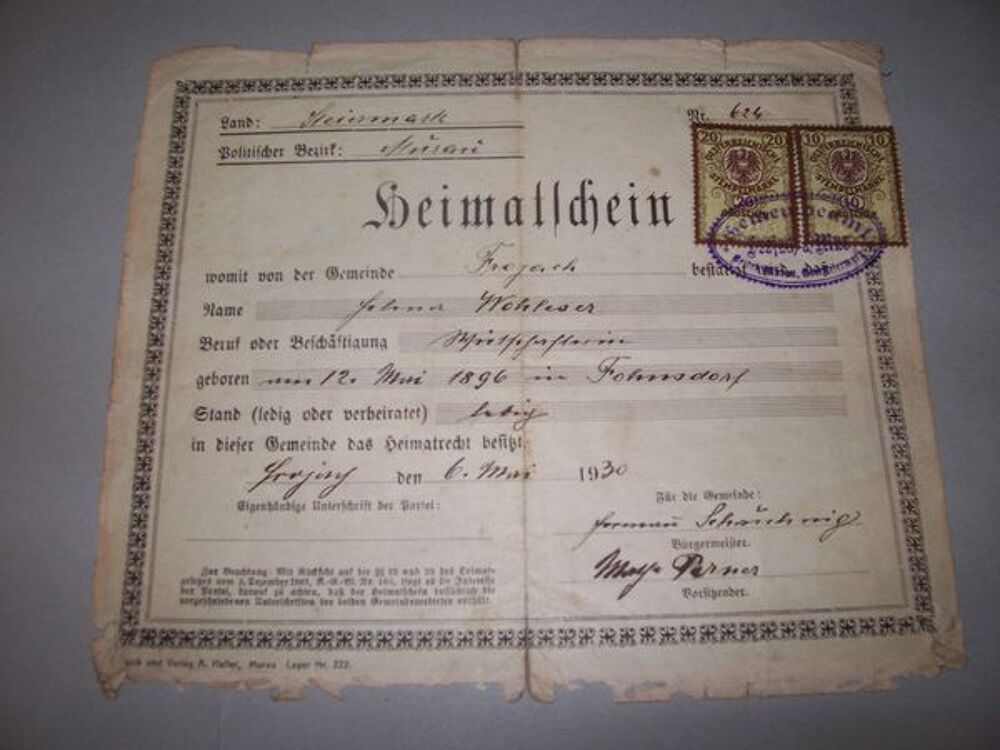 Land: Steiermark
Nr. 624
Politischer Bezirk: Murau
20 20
ÖSTERREICHISCHE
STEMPELMARKE
20
10 10
ÖSTERREICHISCHE
STEMPELMARKE
10
Heimatschein
womit von der Gemeinde Frojach bestätigt wird, daß
Name Wohleser
Beruf oder Beschäftigung Wirtschafterin
geboren am 12. Mai 1896 in Fohnsdorf
Stand (ledig oder verheiratet) ledig
in dieser Gemeinde das Heimatrecht besitzt.
Frojach den 6. Mai 1930
Eigenhändige Unterschrift der Partei:
Für die Gemeinde:
Bürgermeister.
Perner
Vorsitzender.
Zur Beachtung: Mit Rücksicht auf die §§ und des Heimat-
gesetzes vom 3. Dezember 1863, R.-G.-Bl. Nr. 105, liegt es im Interesse
der Partei, darauf zu achten, daß der Heimatschein tatsächlich die
vorgeschriebenen Unterschriften der beiden Gemeindevertreter enthält.
und Verlag A. Heller, Murau Lager Nr. 222.